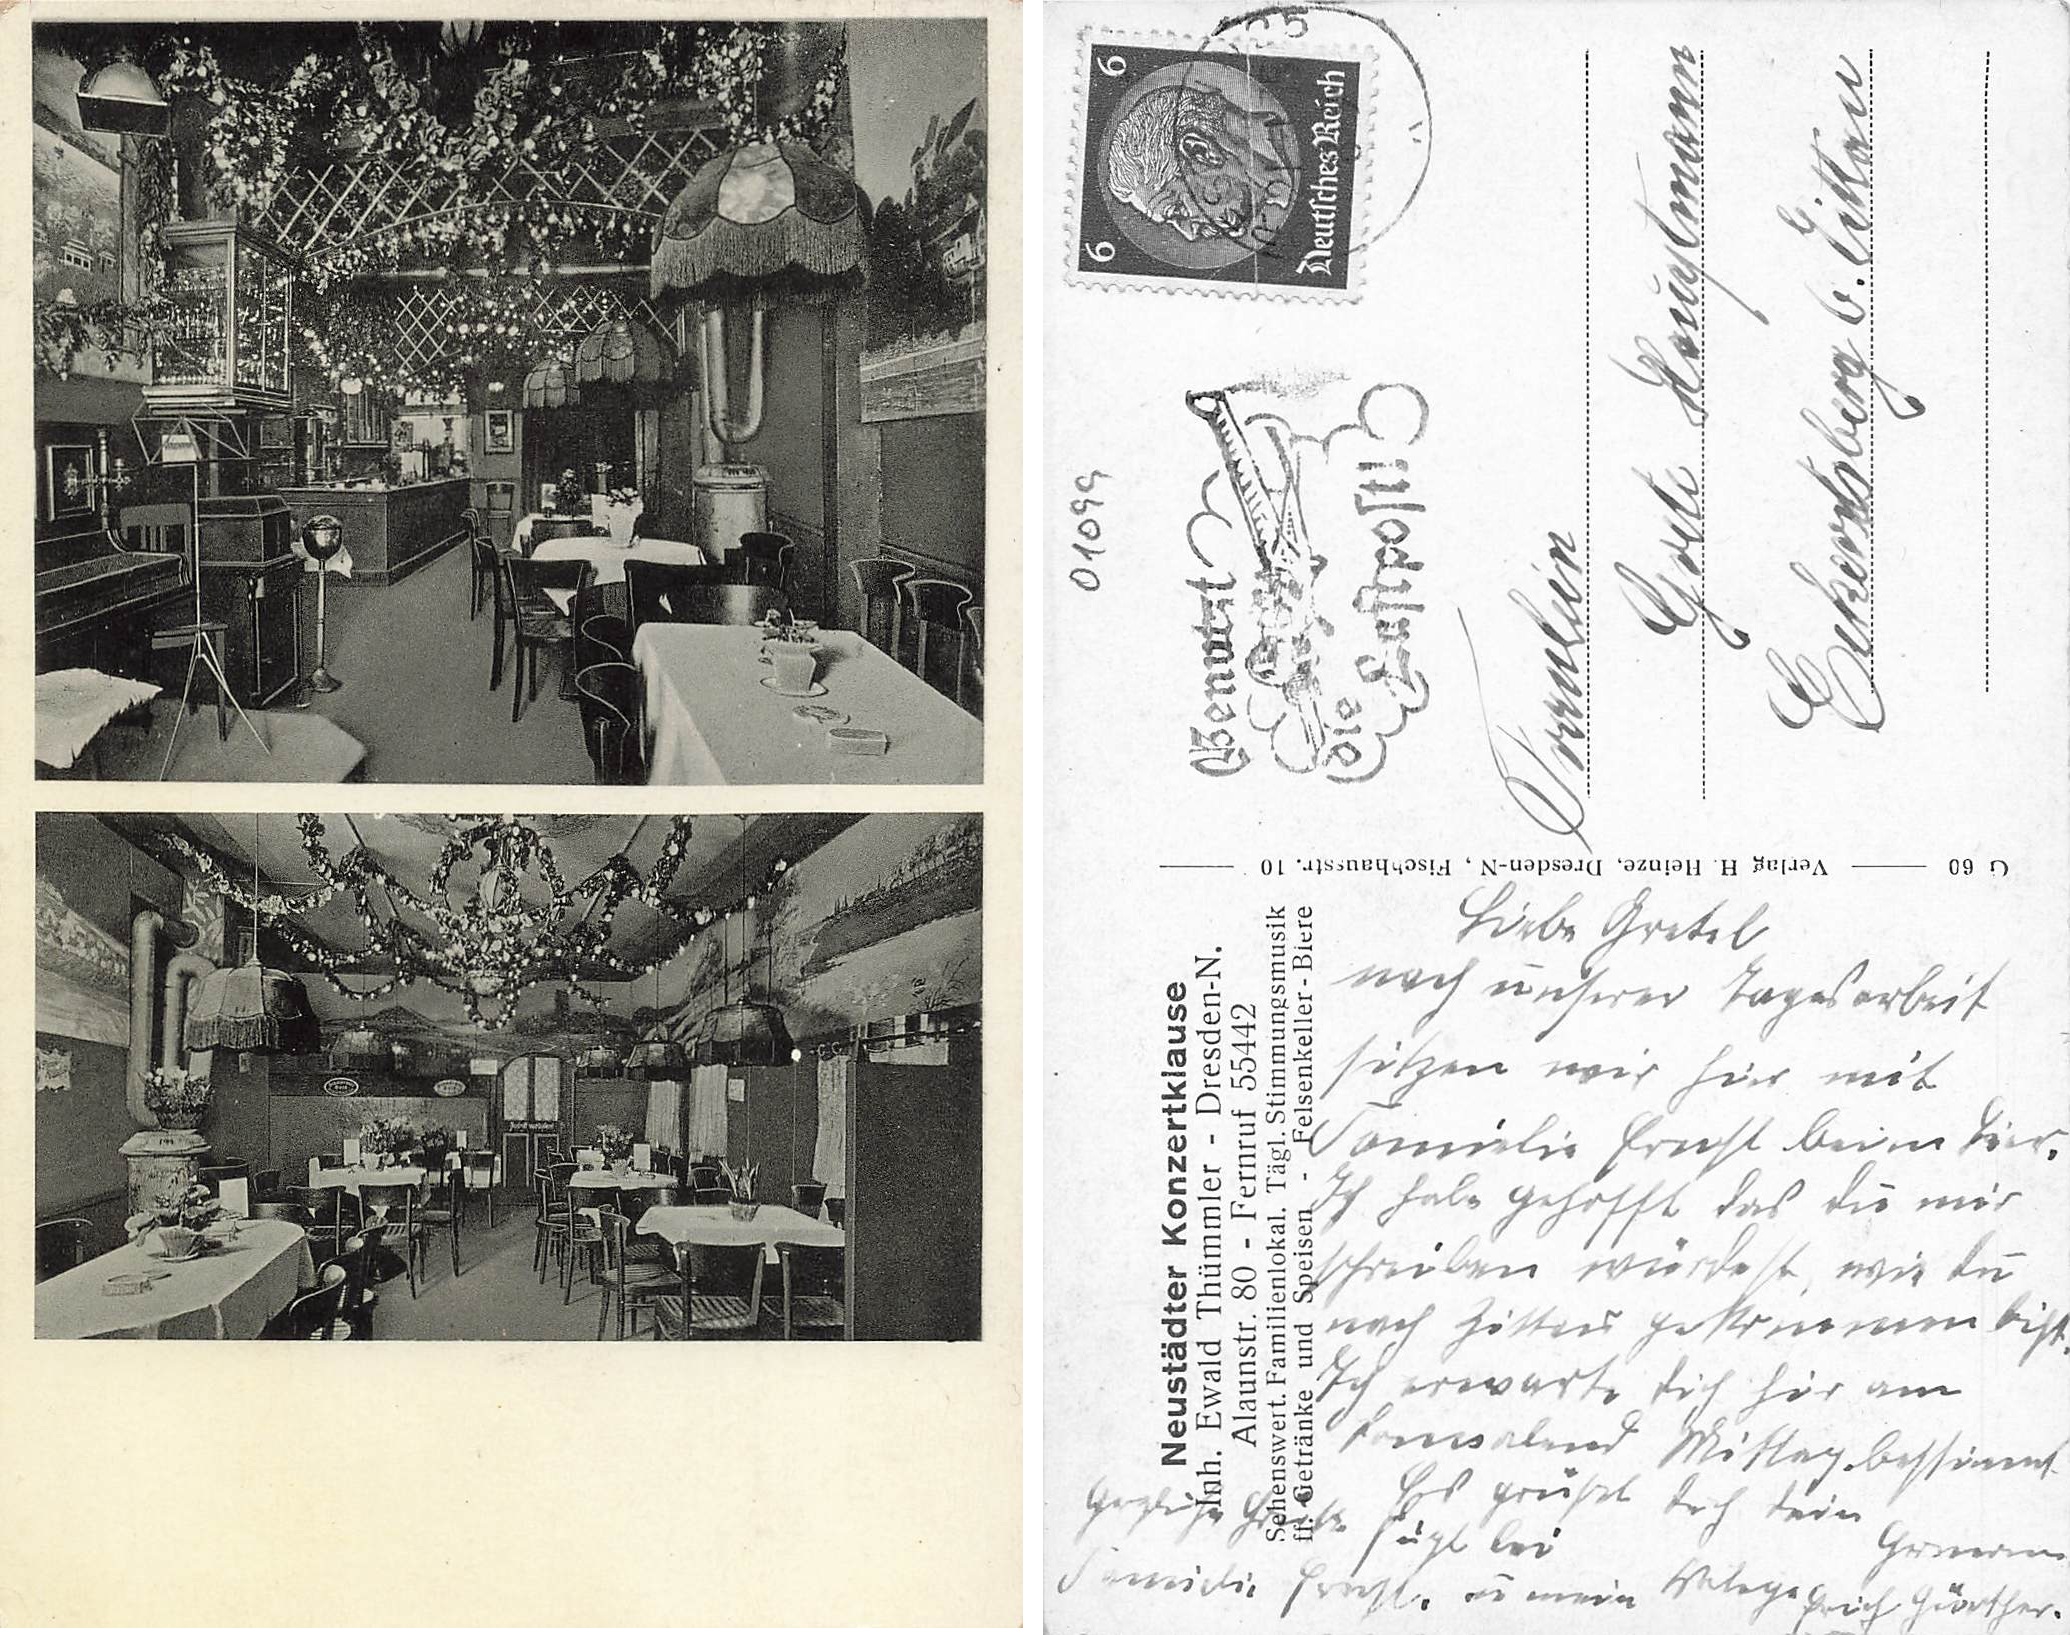 6 6
Deutsches Reich
01099
Benutzt
die Luftpost!
Fräulein
Gretl Hauptmann
Eckartsberg b. Zittau
Verlag H. Heinze, Dresden-N., Fischhausstr. 10
G 60
Neustädter Konzertklause
Inh. Ewald Thümmler - Dresden-N.
Alaunstr. 80 - Fernruf 55442
Sehenswert. Familienlokal. Tägl. Stimmungsmusik
ff. Getränke und Speisen - Felsenkeller-Biere
Liebe Gretel
nach unserer Tagesarbeit
sitzen wir hier mit
Familie Ernst beim Bier.
Ich habe gehofft das du mir
schreiben würdest, wie du
nach Zittau gekommen bist.
Ich erwarte dich hier am
Sonnabend Mittag bestimmt
Es grüßt dich dein
Herzliche Grüße fügt bei
Familie Ernst. u mein Kolege Erich Günther.